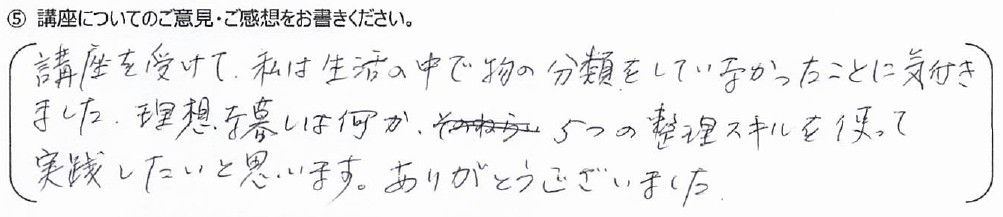 ⑤ 講座についてのご意見・ご感想をお書きください。
講座を受けて、私は生活の中で物の分類をしていなかったことに気付き
ました。理想な暮しは何か、5つの整理スキルを使って
実践したいと思います。ありがとうございました。